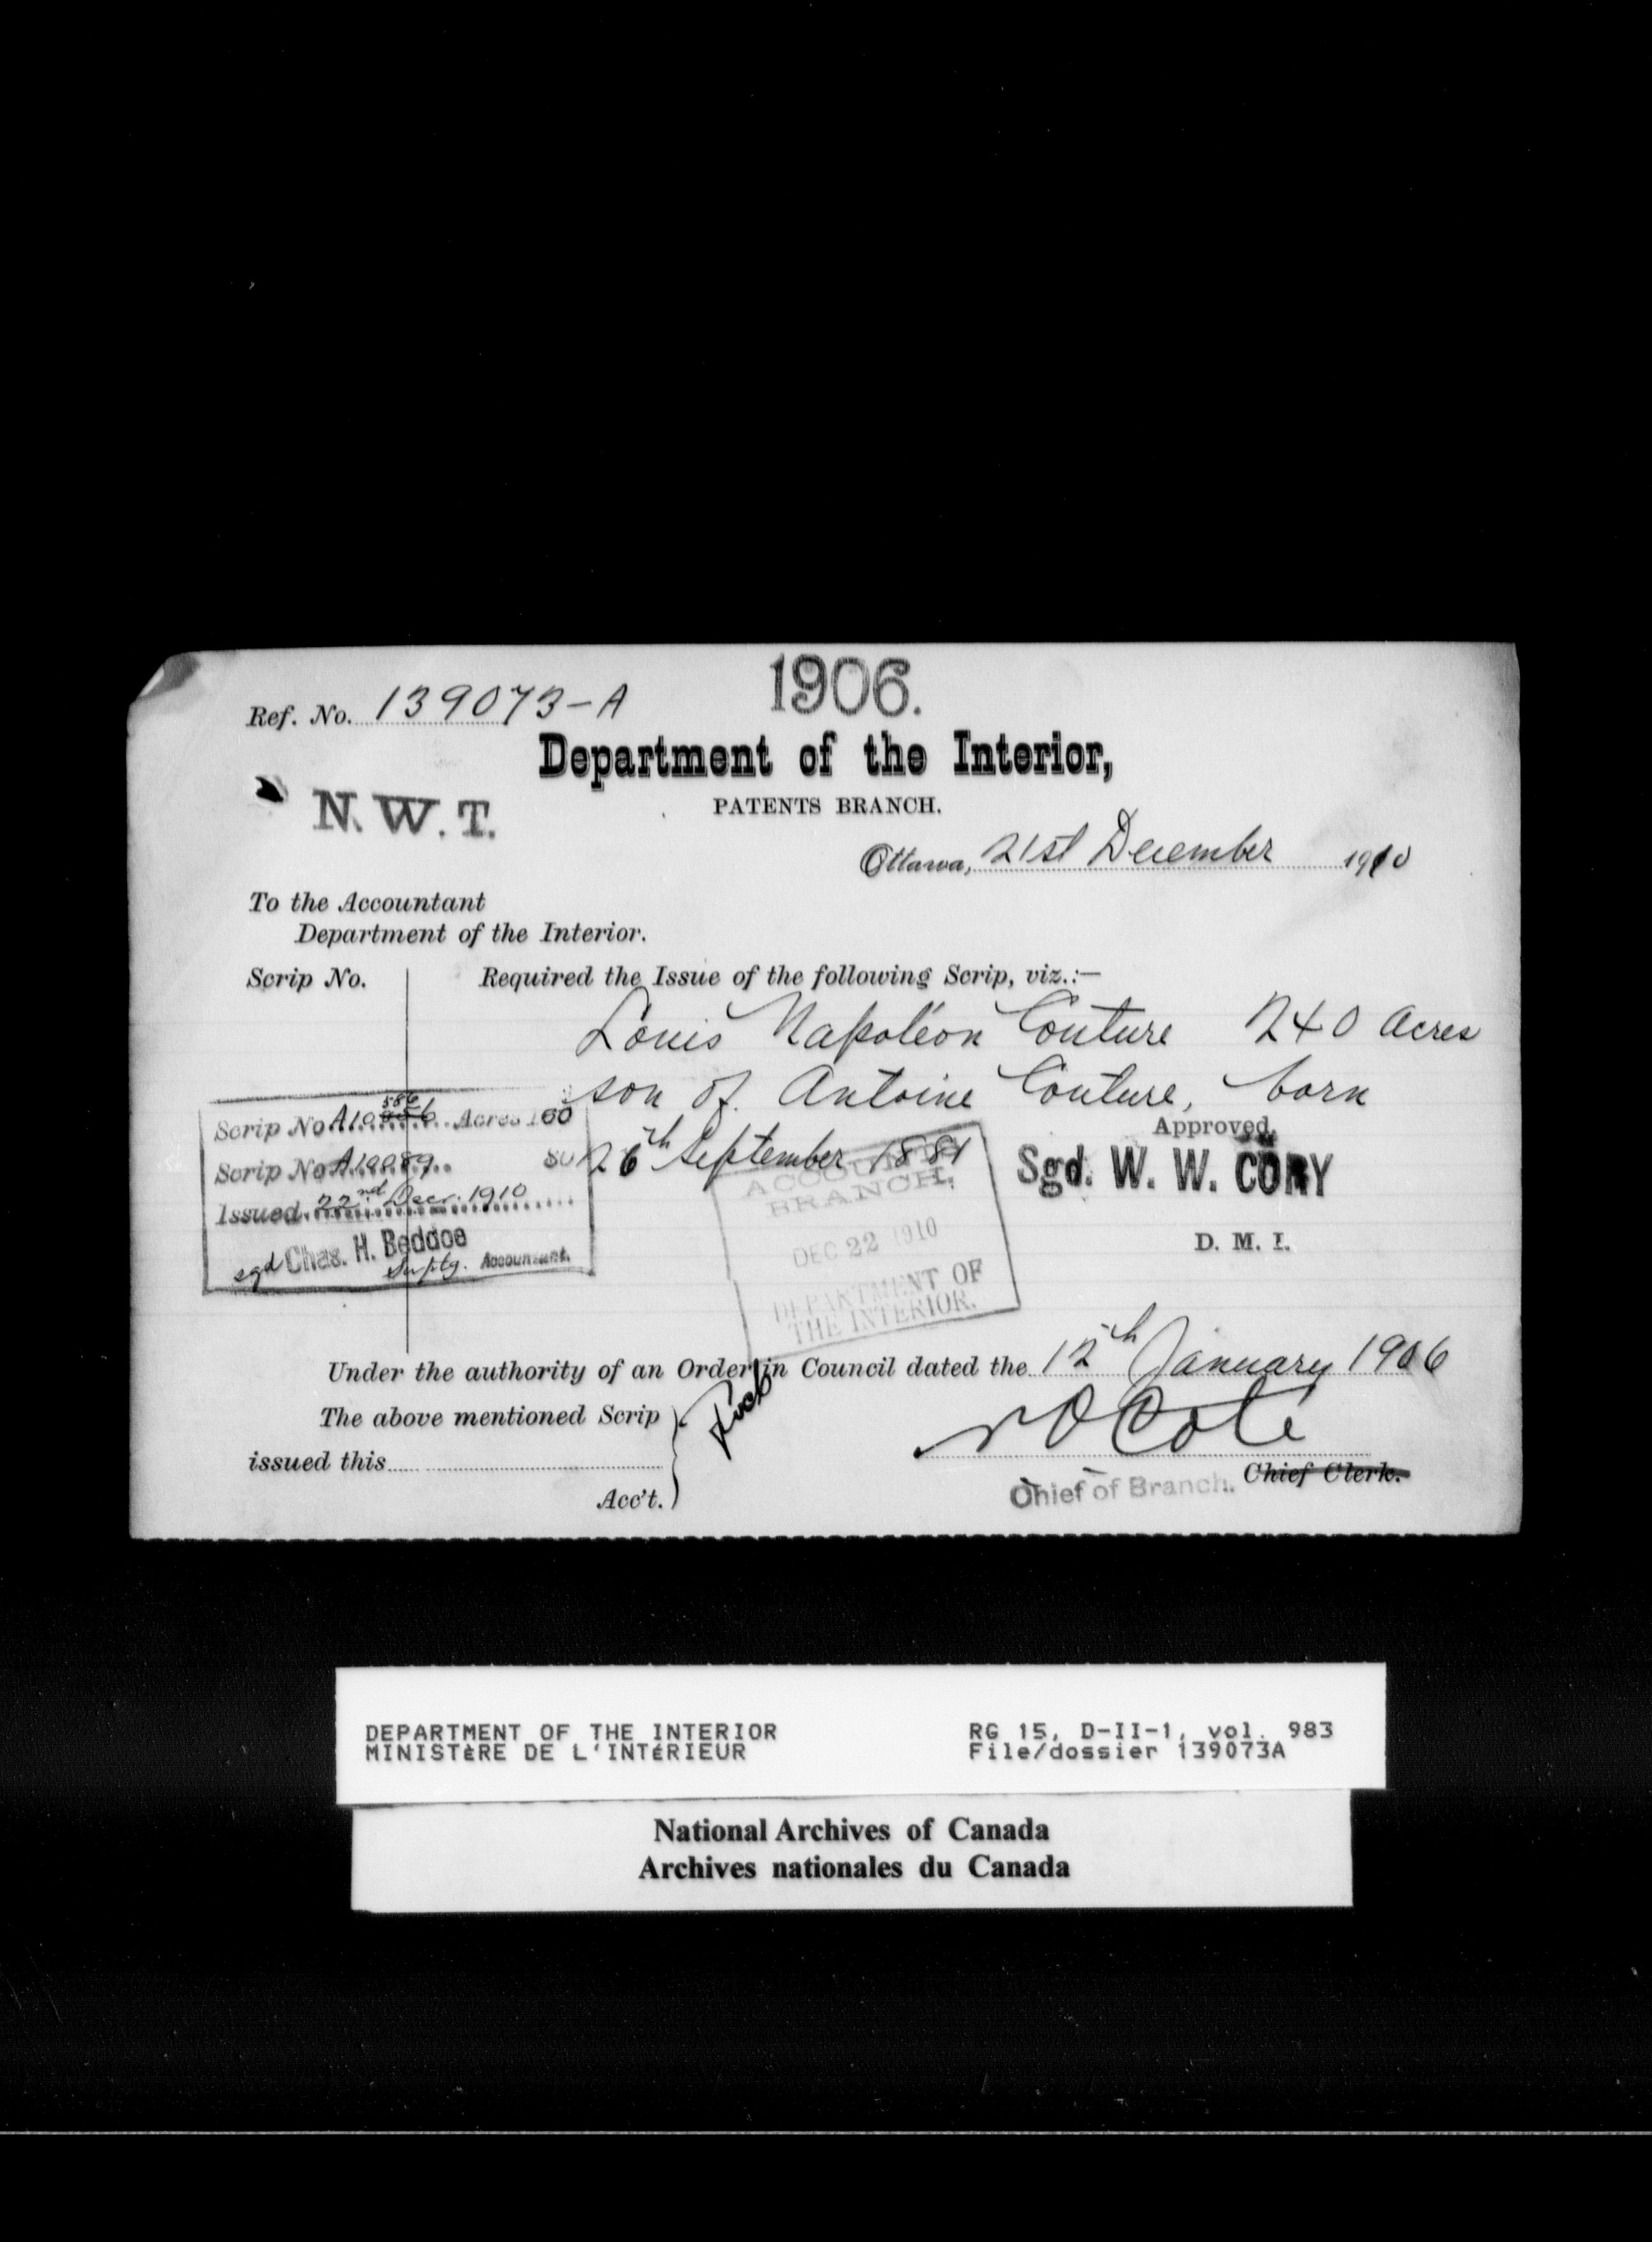 1906.
Ref. No. 139073-A
Department of the Interior,
PATENTS BRANCH.
N. W. T.
Ottawa, 21st December 1910
To the Accountant
Department of the Interior.
Scrip No. Required the Issue of the following Scrip, viz.:—
Louis Napoléon Couture 240 Acres
son of Antoine Couture, born
26th September 1881
586
Scrip No. A10 Acres 160
Scrip No. A10089 80
Issued 22nd Decr. 1910
sgd Chas. H. Beddoe
Accountant.
ACCOUNTS
BRANCH.
DEC 22 1910
DEPARTMENT OF
THE INTERIOR.
Approved,
Sgd. W. W. CORY
D. M. I.
Under the authority of an Order in Council dated the 12th January 1906
The above mentioned Scrip
issued this
Acc't.
N O Coté
Chief of Branch. Chief Clerk.
DEPARTMENT OF THE INTERIOR
MINISTÈRE DE L'INTÉRIEUR
RG 15, D-II-1, vol. 983
File/dossier 139073A
National Archives of Canada
Archives nationales du Canada